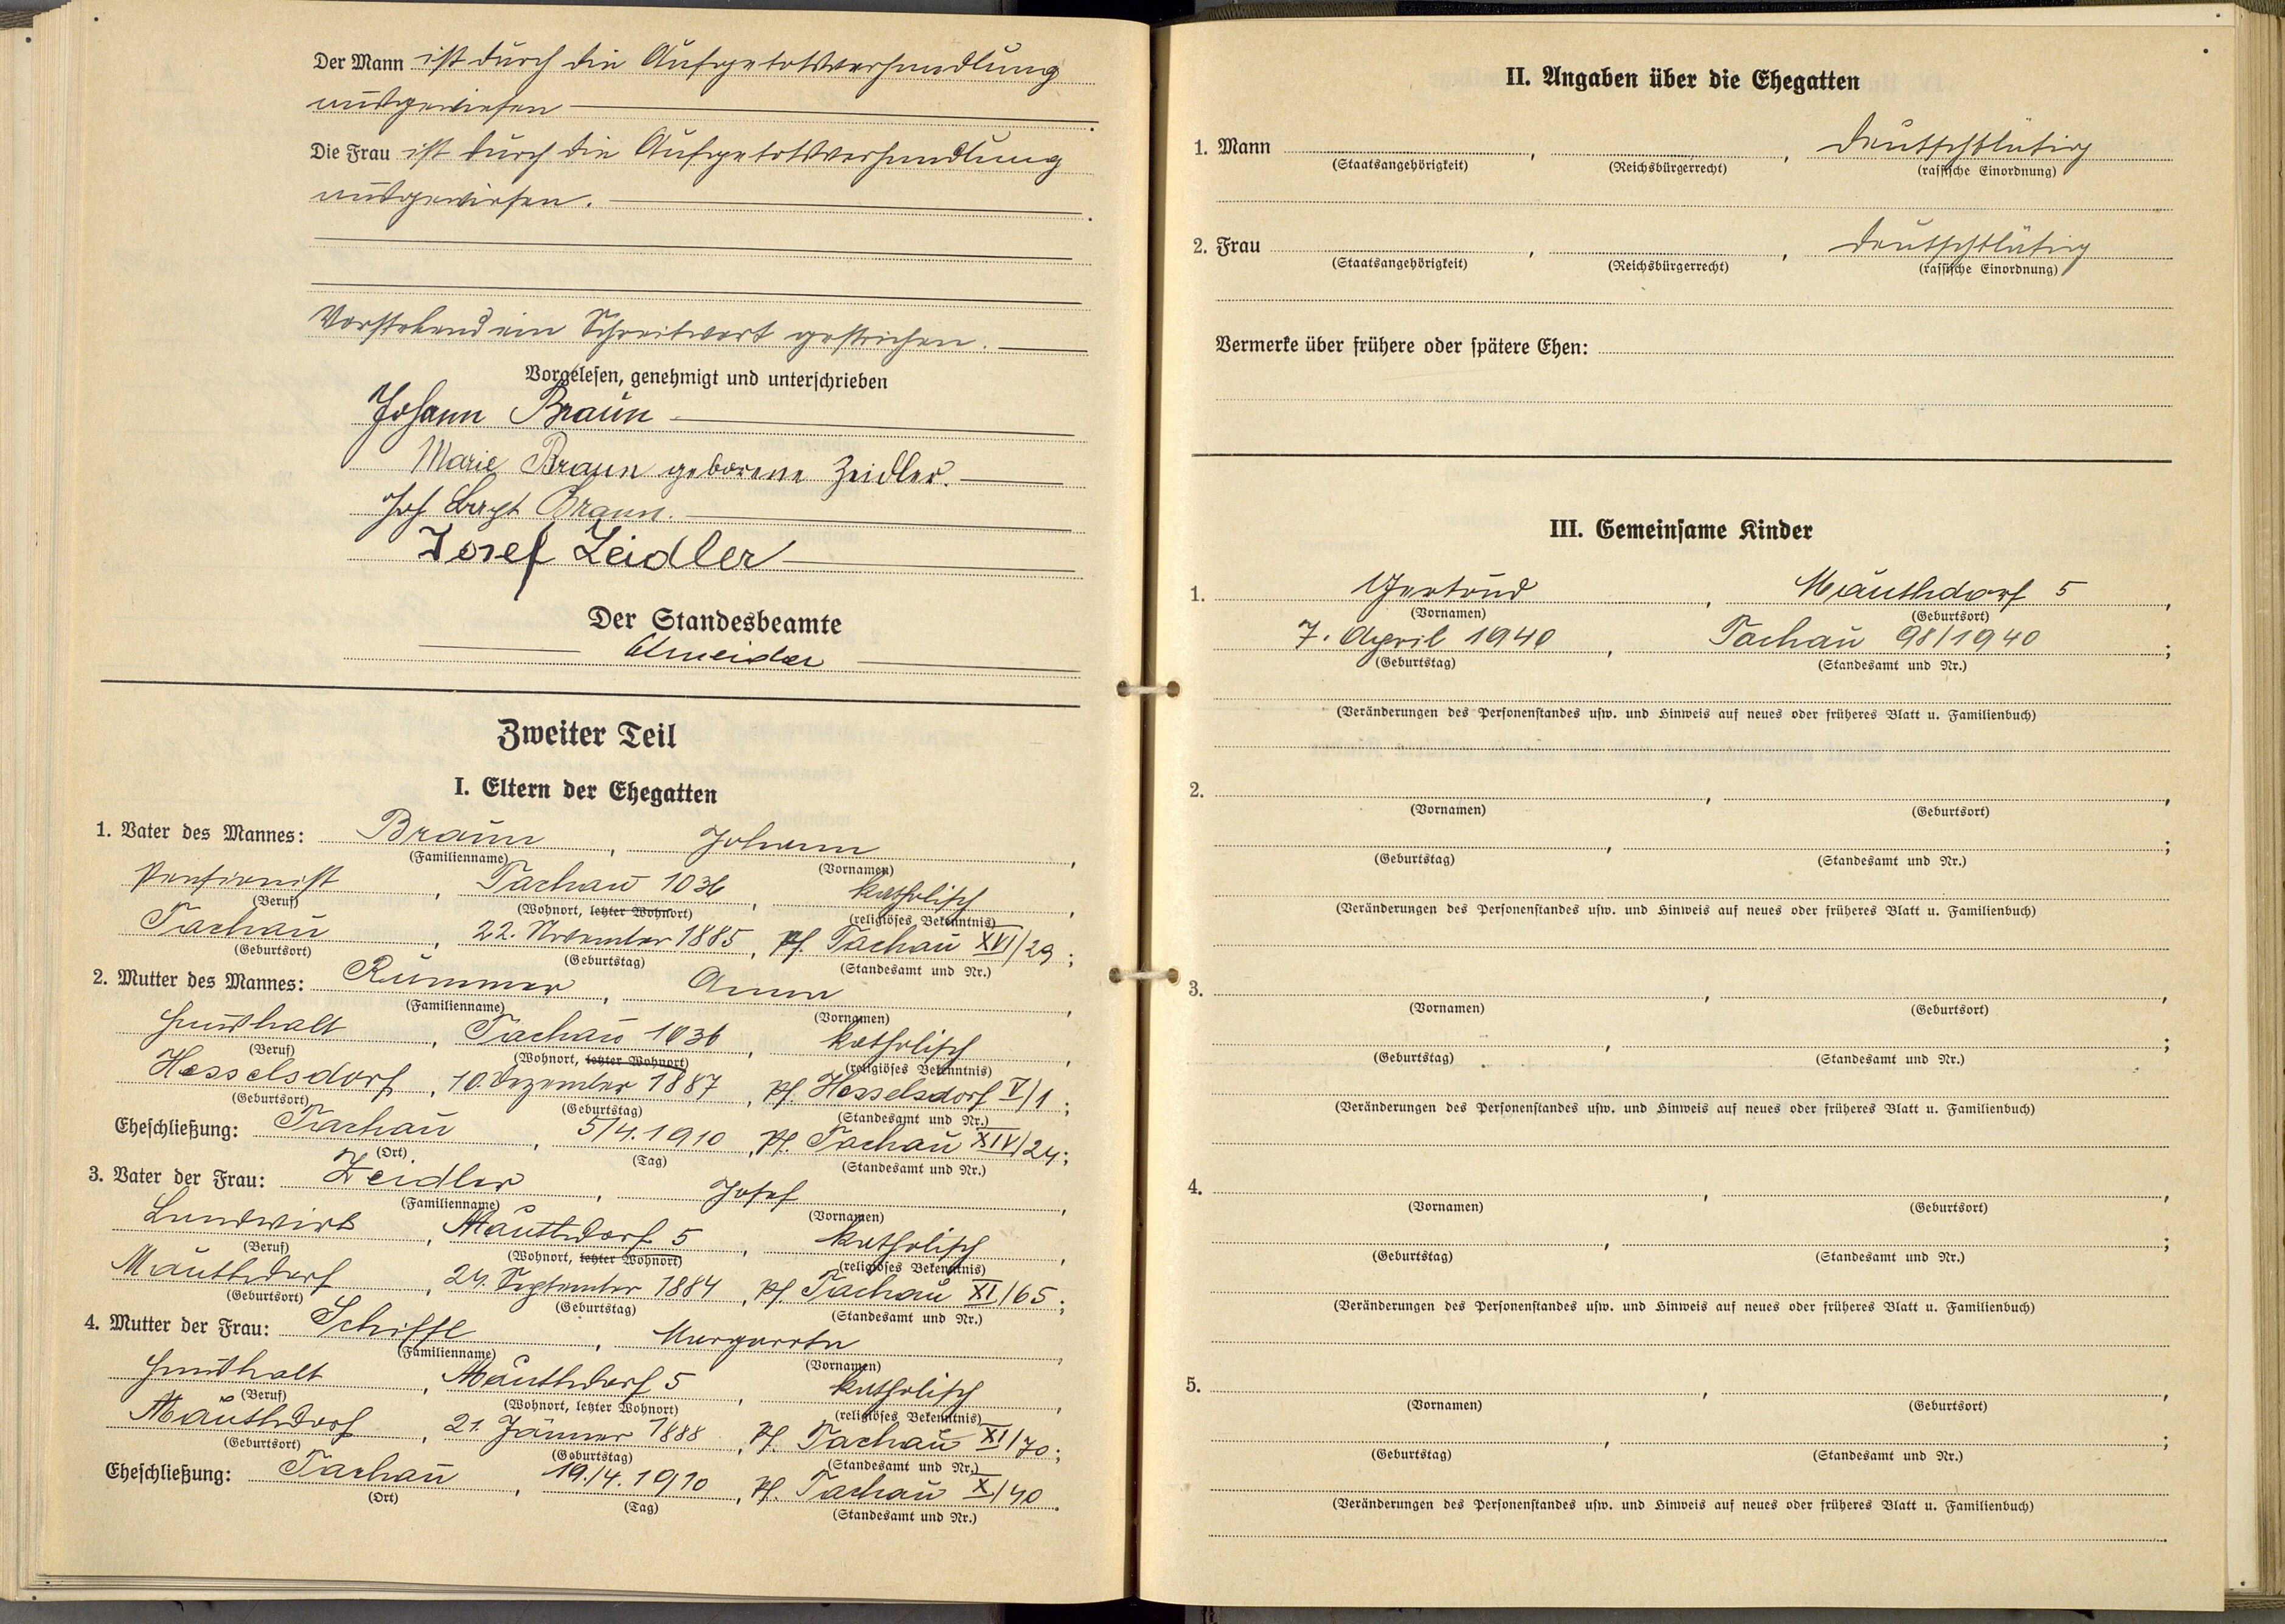 Der Mann ist durch die Aufgebotsverhandlung
ausgewiesen
Die Frau ist durch die Aufgebotsverhandlung
ausgewiesen.
Vorstehend ein Schreibwort gestrichen.
Vorgelesen, genehmigt und unterschrieben
Johann Braun
Marie Braun geborene Zeidler.
Joh Braun.
Josef Zeidler
Der Standesbeamte
Zweiter Teil
I. Eltern der Ehegatten
1. Vater des Mannes: Braun, Johann,
(Familienname) (Vornamen)
Pensionist, Tachau 1036, katholisch,
(Beruf) (Wohnort, letzter Wohnort) (religiöses Bekenntnis)
Tachau, 22. November 1885, Pf. Tachau XVI/29;
(Geburtsort) (Geburtstag) (Standesamt und Nr.)
2. Mutter des Mannes: Rummer, Anna,
(Familienname) (Vornamen)
Haushalt, Tachau 1036, katholisch,
(Beruf) (Wohnort, letzter Wohnort) (religiöses Bekenntnis)
Hesselsdorf, 10. Dezember 1887, Pf. Hesselsdorf V/1;
(Geburtsort) (Geburtstag) (Standesamt und Nr.)
Eheschließung: Tachau, 5/4. 1910, Pf. Tachau XIV/24;
(Ort) (Tag) (Standesamt und Nr.)
3. Vater der Frau: Zeidler, Josef,
(Familienname) (Vornamen)
Landwirt, Mauthdorf 5, katholisch,
(Beruf) (Wohnort, letzter Wohnort) (religiöses Bekenntnis)
Mauthdorf, 24. September 1884, Pf. Tachau XI/65;
(Geburtsort) (Geburtstag) (Standesamt und Nr.)
4. Mutter der Frau: Schiffl, Margareta,
(Familienname) (Vornamen)
Haushalt, Mauthdorf 5, katholisch,
(Beruf) (Wohnort, letzter Wohnort) (religiöses Bekenntnis)
Mauthdorf, 21. Jänner 1888, Pf. Tachau XI/70;
(Geburtsort) (Geburtstag) (Standesamt und Nr.)
Eheschließung: Tachau, 19./4. 1910, Pf. Tachau X/40.
(Ort) (Tag) (Standesamt und Nr.)
II. Angaben über die Ehegatten
1. Mann , , deutschblütig
(Staatsangehörigkeit) (Reichsbürgerrecht) (rassische Einordnung)
2. Frau , , deutschblütig
(Staatsangehörigkeit) (Reichsbürgerrecht) (rassische Einordnung)
Vermerke über frühere oder spätere Ehen:
III. Gemeinsame Kinder
1. Gertrud, Mauthdorf 5,
(Vornamen) (Geburtsort)
7. April 1940, Tachau 98/1940;
(Geburtstag) (Standesamt und Nr.)
(Veränderungen des Personenstandes usw. und Hinweis auf neues oder früheres Blatt u. Familienbuch)
2. , ,
(Vornamen) (Geburtsort)
, ;
(Geburtstag) (Standesamt und Nr.)
(Veränderungen des Personenstandes usw. und Hinweis auf neues oder früheres Blatt u. Familienbuch)
3. , ,
(Vornamen) (Geburtsort)
, ;
(Geburtstag) (Standesamt und Nr.)
(Veränderungen des Personenstandes usw. und Hinweis auf neues oder früheres Blatt u. Familienbuch)
4. , ,
(Vornamen) (Geburtsort)
, ;
(Geburtstag) (Standesamt und Nr.)
(Veränderungen des Personenstandes usw. und Hinweis auf neues oder früheres Blatt u. Familienbuch)
5. , ,
(Vornamen) (Geburtsort)
, ;
(Geburtstag) (Standesamt und Nr.)
(Veränderungen des Personenstandes usw. und Hinweis auf neues oder früheres Blatt u. Familienbuch)